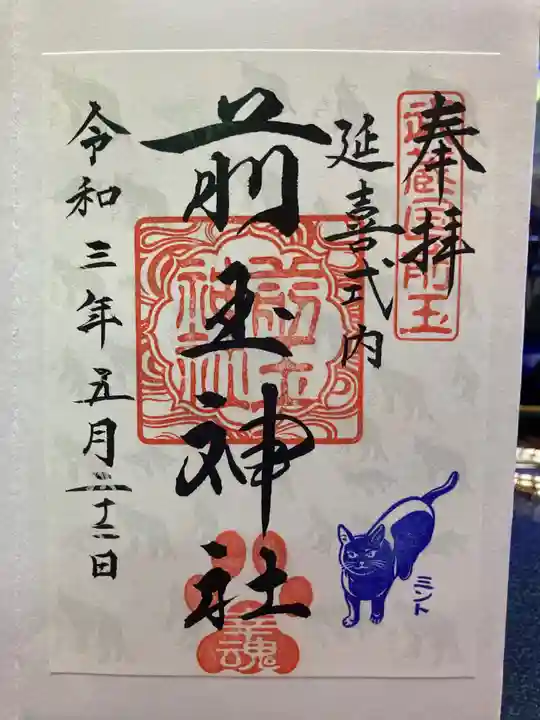 奉拝
武蔵国前玉
延喜式内
前玉神社
前玉神社
幸魂
令和三年五月二十二日
ミント